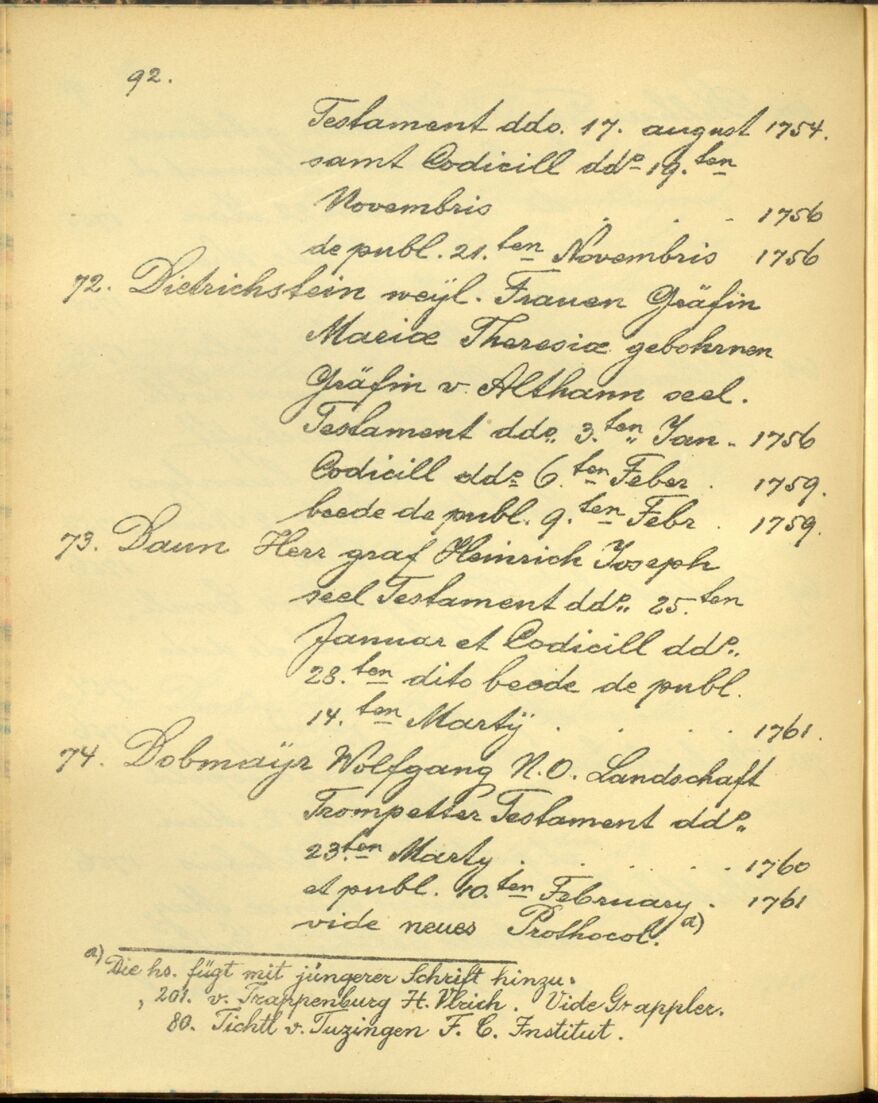 92.
Testament ddo. 17. august 1754.
samt Codicill ddo 19.ten
Novembris . . . 1756
de publ. 21.ten Novembris 1756
72. Dietrichstein weÿl. Frauen Gräfin
Mariæ Theresiæ gebohrnen
Gräfin v. Althann seel.
Testament ddo. 3.ten Jan. 1756
Codicill ddo 6.ten Feber . 1759.
beede de publ. 9.ten Febr . 1759.
73. Daun Herr graf Heinrich Joseph
seel Testament ddo. 25.ten
Januar et Codicill ddo.
28.ten dito beede de publ.
14.ten Martÿ . . . . 1761.
74. Dobmaÿr Wolfgang N.O. Landschaft
Trompetter Testament ddo.
23.ten Marty . . . . 1760
et publ. 10.ten February . 1761
vide neues Prothocol. a)
a) Die hs. fügt mit jüngerer Schrift hinzu:
„201. v. Trappenburg H. Ulrich. Vide Grappler.
80. Tichtl v. Tuzingen F. C. Institut.